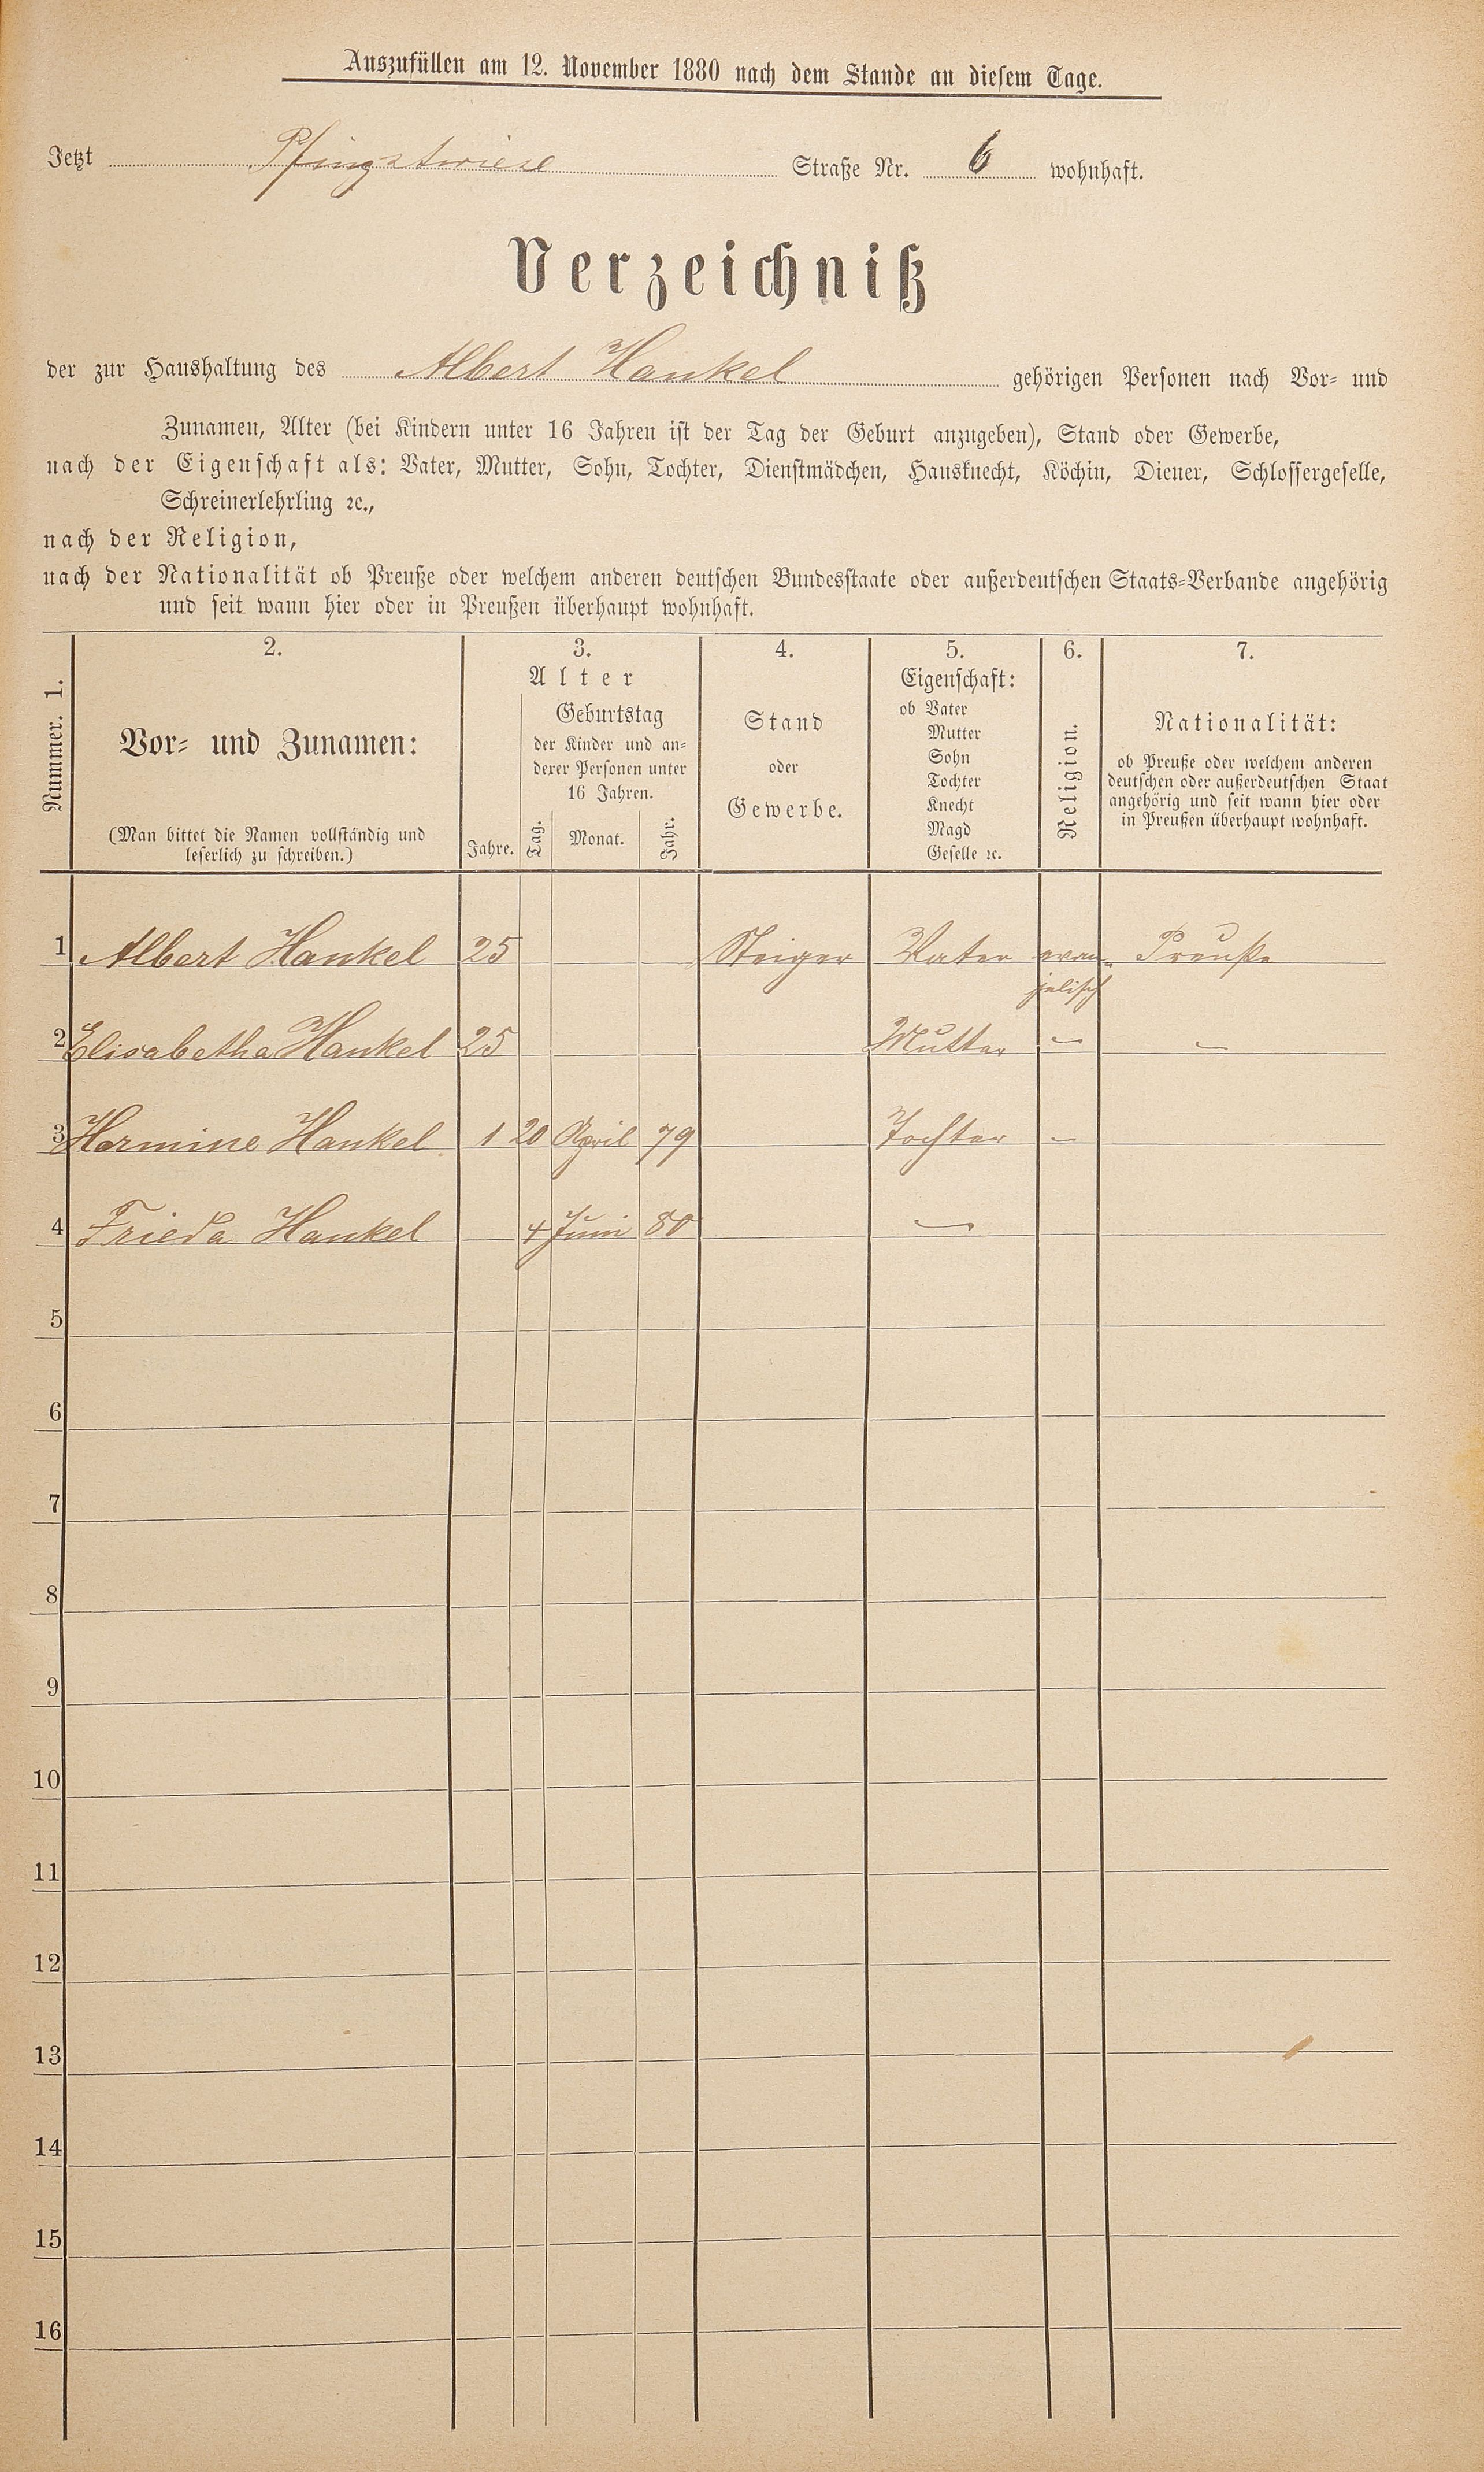 Auszufüllen am 12. November 1880 nach dem Stande an diesem Tage.
Jetzt Pfingstwiese Straße Nr. 6 wohnhaft.
Verzeichniß
der zur Haushaltung des Albert Hankel gehörigen Personen nach Vor- und
Zunamen, Alter (bei Kindern unter 16 Jahren ist der Tag der Geburt anzugeben), Stand oder Gewerbe,
nach der Eigenschaft als: Vater, Mutter, Sohn, Tochter, Dienstmädchen, Hausknecht, Köchin, Diener, Schlossergeselle,
Schreinerlehrling ꝛc.,
nach der Religion,
nach der Nationalität ob Preuße oder welchem anderen deutschen Bundesstaate oder außerdeutschen Staats-Verbande angehörig
und seit wann hier oder in Preußen überhaupt wohnhaft.
Nummer. 1.
2.
Vor- und Zunamen:
(Man bittet die Namen vollständig und
leserlich zu schreiben.)
3.
Alter
Jahre.
Geburtstag
der Kinder und an-
derer Personen unter
16 Jahren.
Tag. Monat. Jahr.
4.
Stand
oder
Gewerbe.
5.
Eigenschaft:
ob Vater
Mutter
Sohn
Tochter
Knecht
Magd
Geselle ꝛc.
6.
Religion.
7.
Nationalität:
ob Preuße oder welchem anderen
deutschen oder außerdeutschen Staat
angehörig und seit wann hier oder
in Preußen überhaupt wohnhaft.
1 Albert Hankel 25 Steiger Vater evan- Preuße
jelisch
2 Elisabetha Hankel 25 Mutter — —
3 Hermine Hankel 1 20 April 79 Tochter —
4 Frieda Hankel 4 Juni 80 —
5
6
7
8
9
10
11
12
13
14
15
16